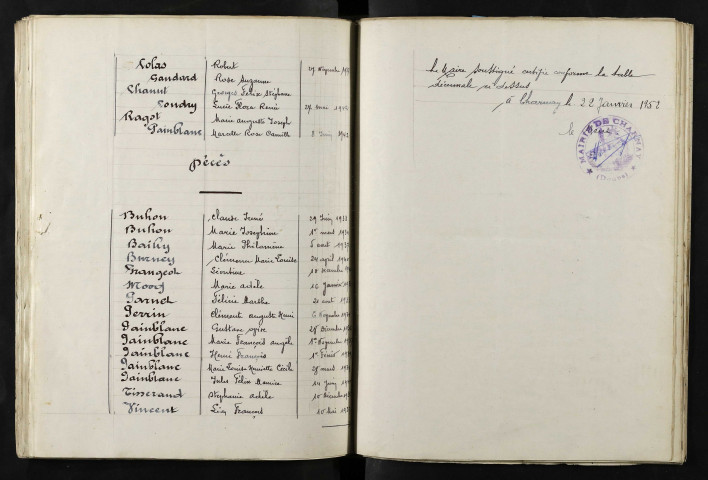 Colas Robert
Gaudard Rose Suzanne
Chanut Georges Félix Stéphane
Coudry Lucie Flora Remi 27 mai
Ragot Marie Auguste Joseph
Painblanc Marcelle Rose Camille 8 Juin
Décès
Buhon Claude Irené 29 Juin
Buhon Marie Joséphine 1er mars
Bailly Marie Philomène 5 août
Burney Clémence Marie Louise 24 avril
Frangeot Léontine 10 décembre
Marie adèle 16 Janvier
Garnet Féline Marthe 21 août
Perrin Clément auguste Henri 6 Novembre
Painblanc Gustave 28 Décembre
Painblanc Marie François angèle 1er Novembre
Painblanc Henri François 1er Février
Painblanc Marie Louise Henriette Cécile 28 mars
Painblanc Jules Félix Maurice 14 Juin
Tisserand Stéphanie adèle 10 décembre
Vincent Léon François 10 Mai
Le Maire soussigné certifie conforme la table
décennale ci-dessus
à Charmay le 22 Janvier 1952
le Maire
MAIRIE DE CHARNAY
(Doubs)